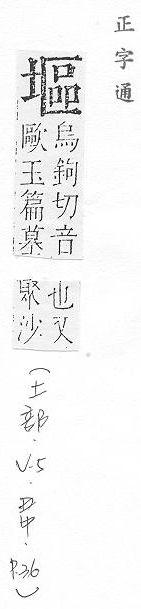 正字通
塸
烏鉤切音
歐玉篇墓
也又
聚沙
(土部·V.5·丑中·P.36)